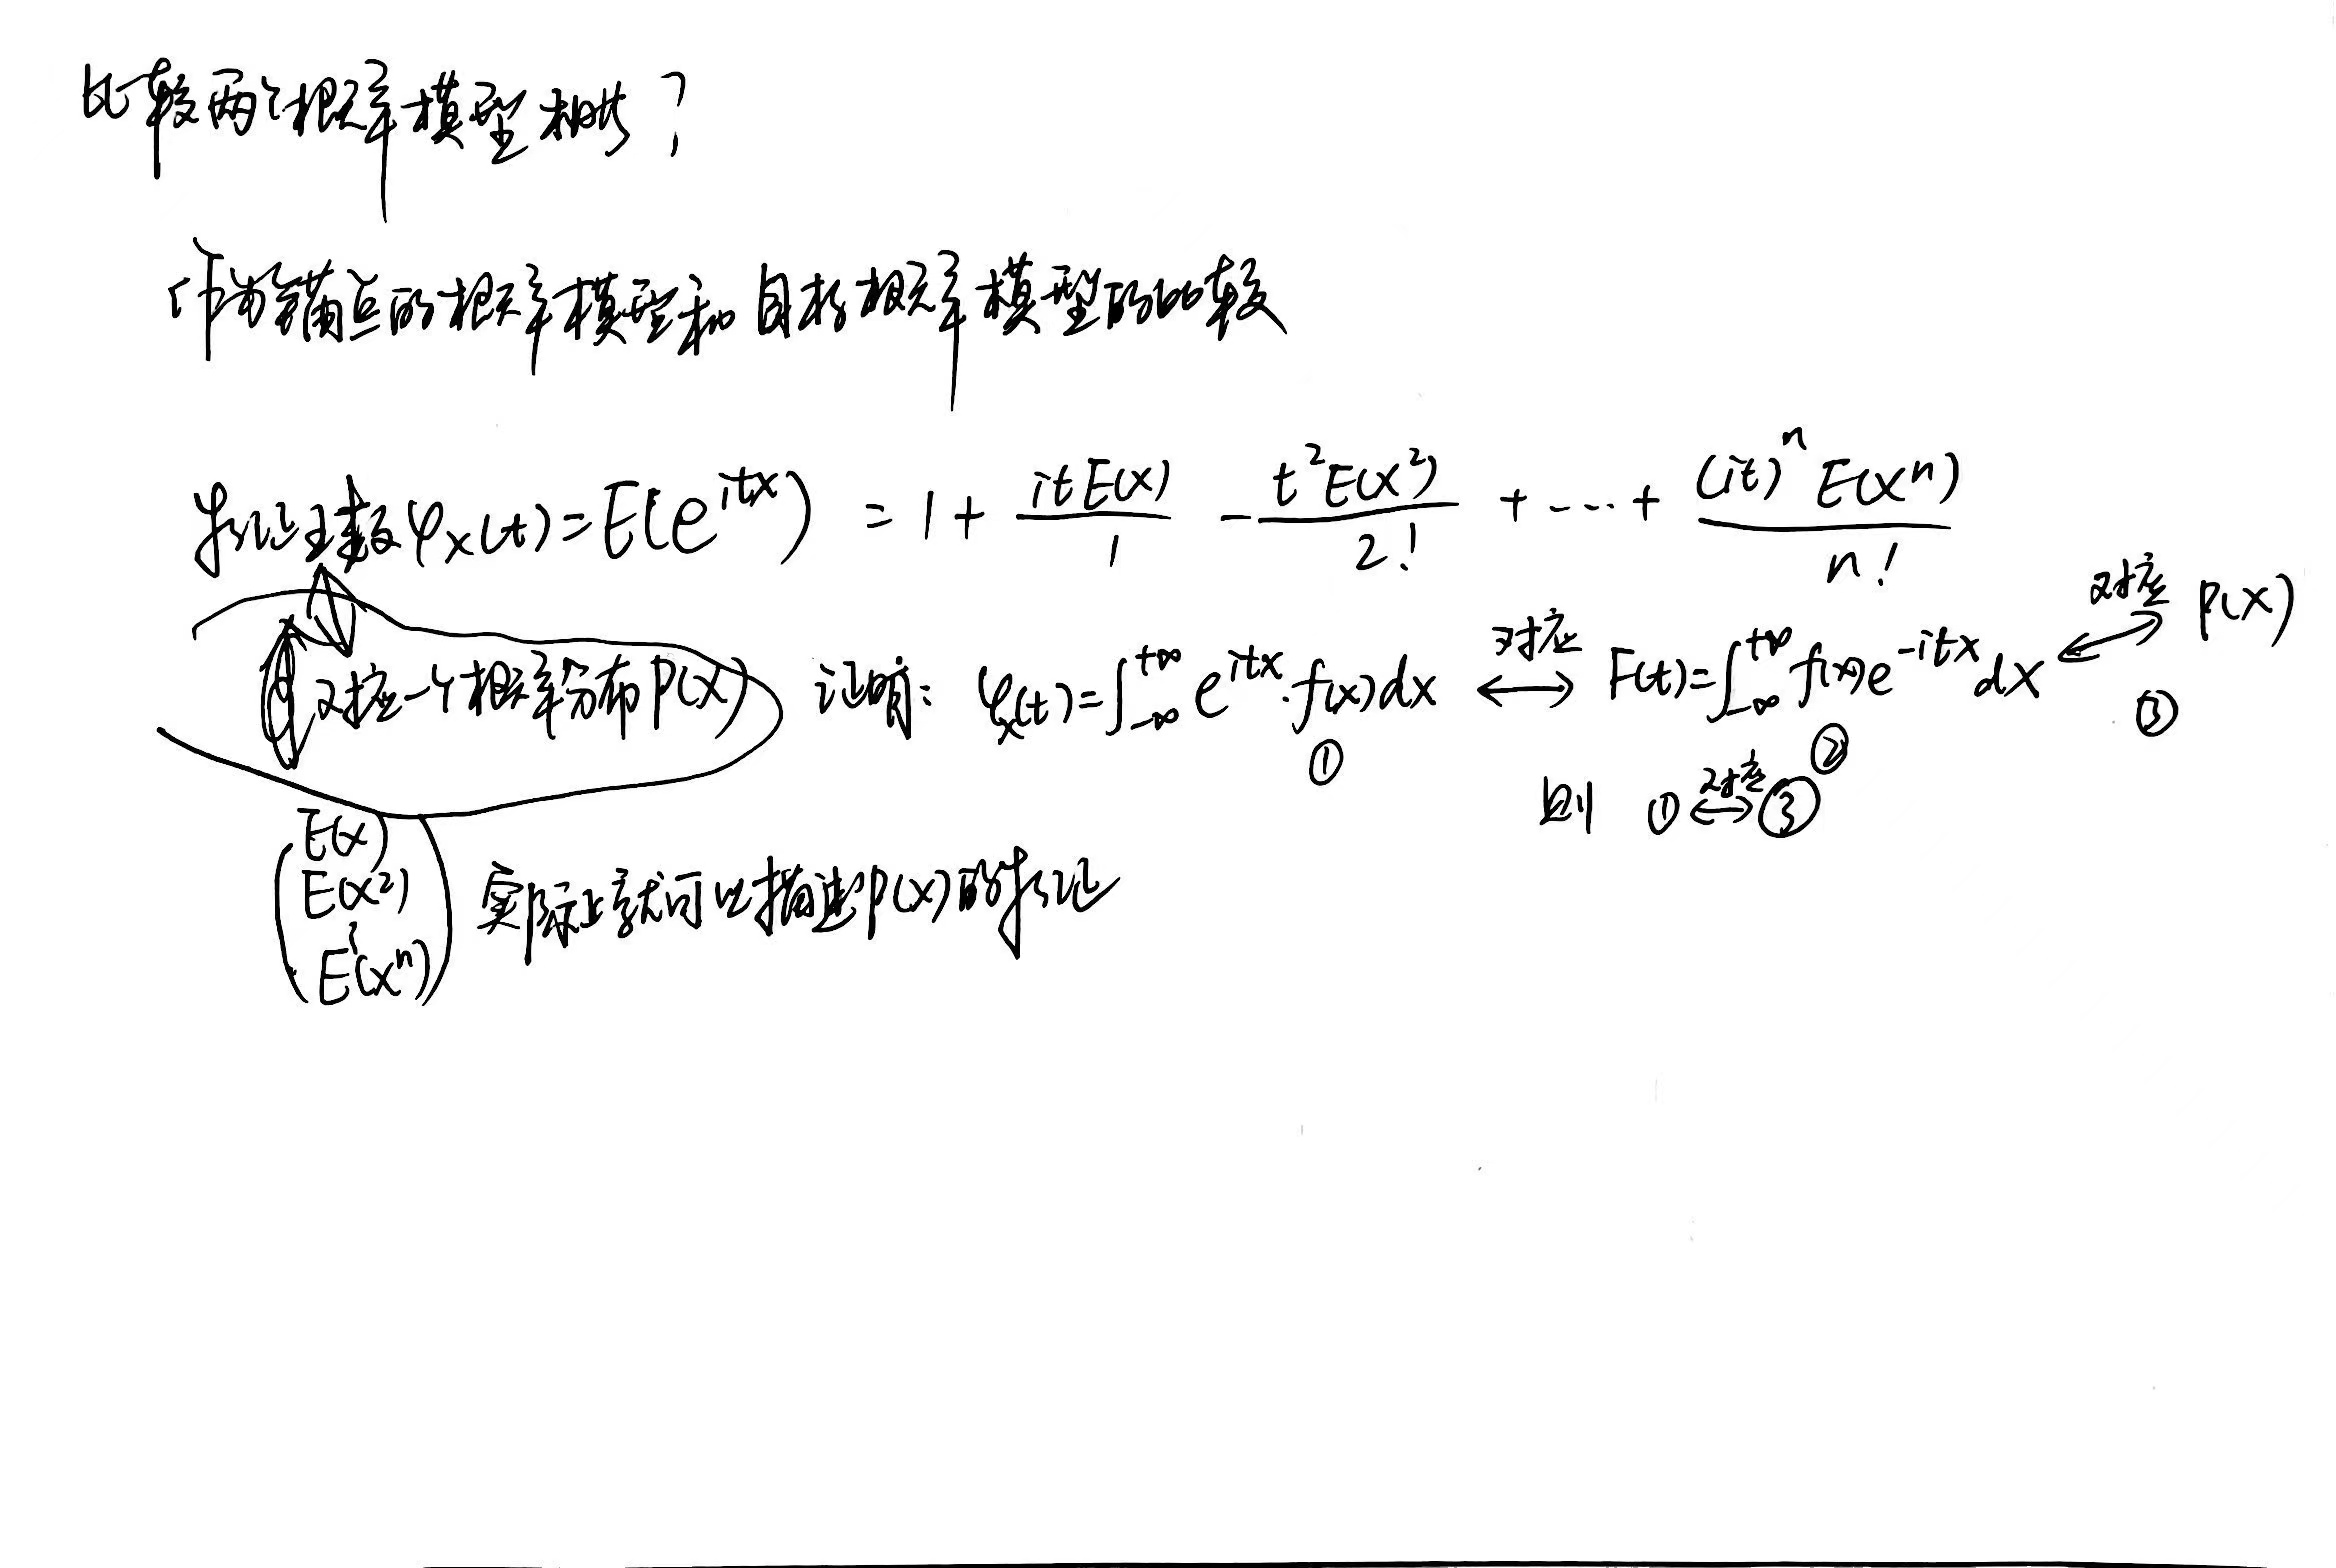 比较两个概率模型相比?
作为锚点的概率模型和目标概率模型的比较
特征函数φx(t)=E(e^{itx}) = 1 + itE(x)/1 - t²E(x²)/2! + ... + (it)ⁿE(xⁿ)/n!
对应一个概率分布P(x) 证明: φx(t)=∫_{-∞}^{+∞} e^{itx}·f(x)dx ⟷对应 F(t)=∫_{-∞}^{+∞} f(x)e^{-itx}dx ⟷对应 P(x)
① ② ③
则 ①⟷对应③
(E(x)
E(x²)
⋮
E(xⁿ)) 实际上就可以描述P(x)的特征